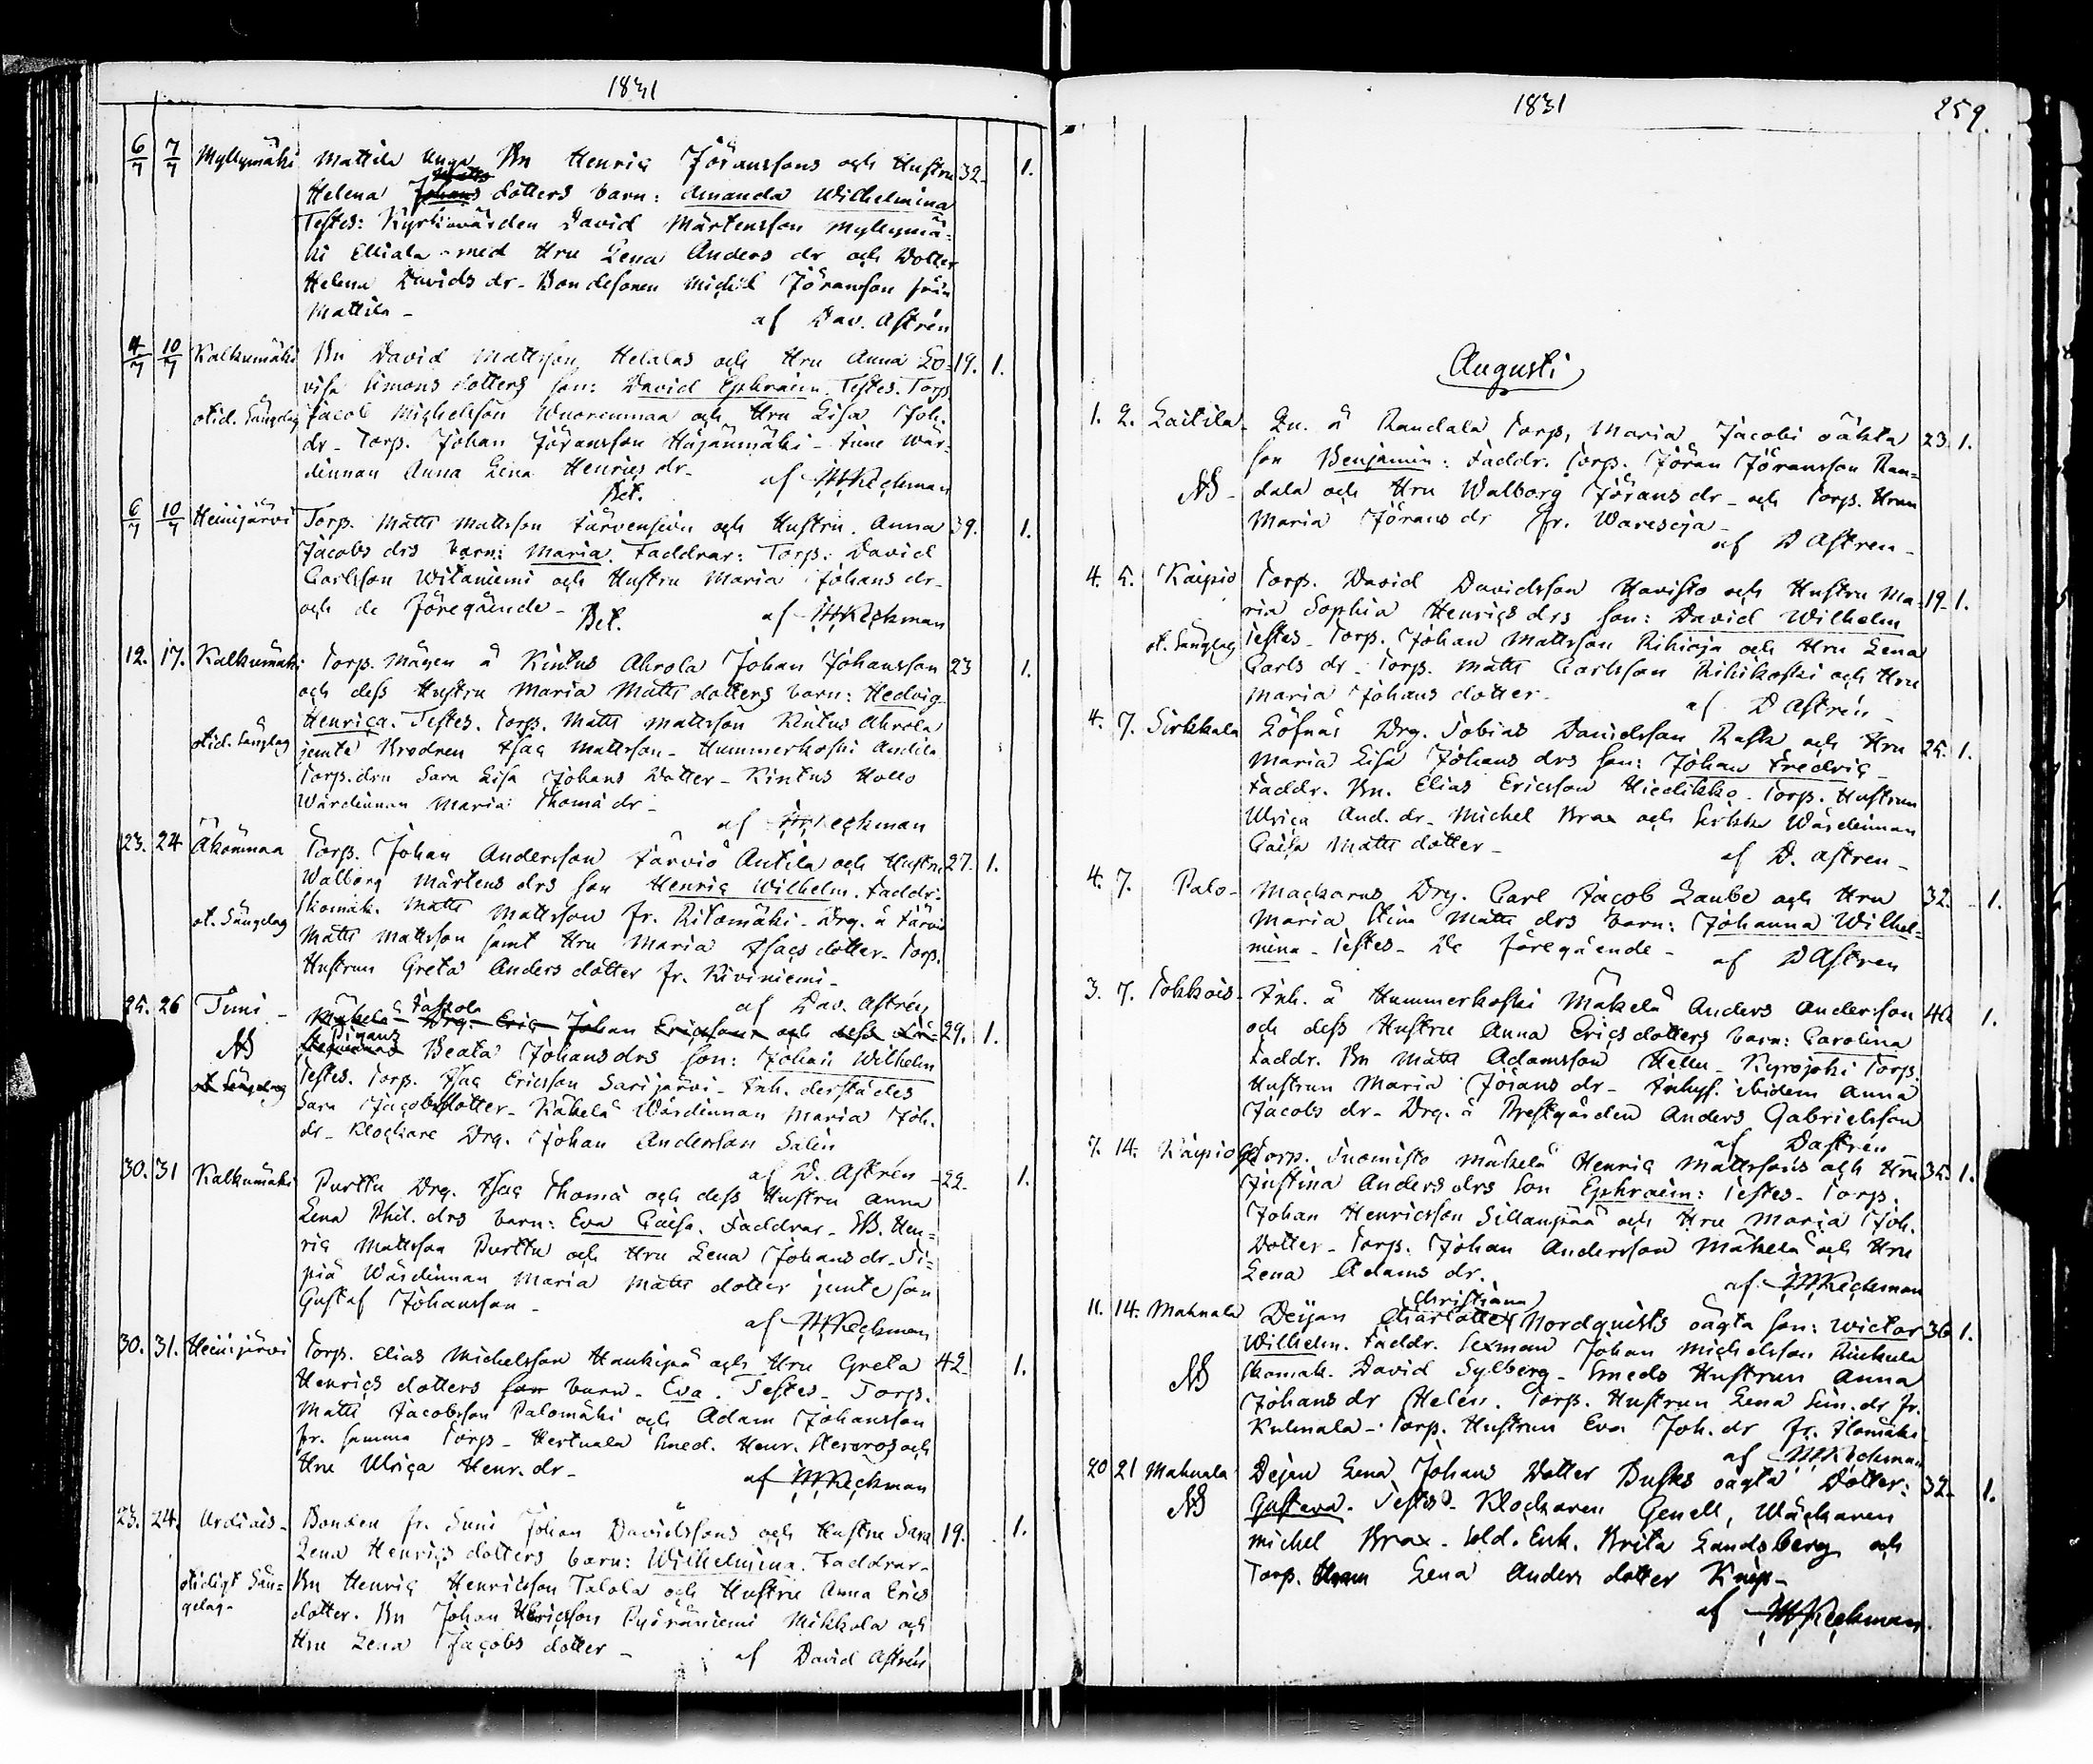 1831
6/7 7/7 Myllymäki Mattila unga Bn Henric Jöranssons och Hustru 32. 1.
Helena Matts Johans dotters barn: Amanda Wilhelmina
Testes: Kyrkiovärden David Mårtensson Myllymä-
ki Elliala med Hru Lena Anders dr och Dotter
Helena Davids dr. Bondesonen Michel Jöransson från
Mattila -
af Dav. Astrén
4/7 10/7 Kalkumäki Bn David Mattsson Helalas och Hru Anna Lo- 19. 1.
visa Simons dotters son: David Ephraim. Testes. Torp.
otid. Sängelag Jacob Michelsson Wuorenmaa och Hru Lisa Joh.
dr - Torp. Johan Jöransson Häjänmäki - Tune Wär-
dinnan Anna Lena Henrics dr -
af M Keckman
Bet.
6/7 10/7 Heinijärvi Torp. Matts Mattsson Järvensivu och Hustru Anna 39. 1.
Jacobs drs barn: Maria. Faddrar: Torp. David
Carlsson Witaniemi och Hustru Maria Johans dr -
och de föregående - Bet.
af M Keckman
12. 17. Kalkumäki Torp. Mågen å Kintus Ahrola Johan Johansson 23 1.
och dess Hustru Maria Matts dotters barn: Hedvig
Henrica. Testes. Torp. Matts Mattsson Kintus Ahrola
otid. Sängelag jemte Brodren Isac Mattsson - Hummerkoski Antila
Torp. dru Sara Lisa Johans Dotter - Kintus Hollo
Wärdinnan Maria Thomä dr -
af M Keckman
23. 24 Äkönmaa Torp. Johan Andersson Järviö Antila och Hustru 27. 1.
Walborg Mårtens drs son Henric Wilhelm. Faddr.
ot. Sängelag Skomak. Matts Mattsson fr. Ritomäki - Drg. å Järviö
Matts Mattsson samt Hru Maria Isacs dotter - Torp.
Hustrun Greta Anders dotter fr. Kiviniemi -
af Dav. Astrén
25. 26 Tumi - Mäkelä Drg. Eric Johan Ericssons och dess 29. 1.
AS Beata Johans drs son: Johan Wilhelm
ot Sängelag Testes. Torp. Isac Ericsson Sarijärvi - Inh. derstädes
Sara Jacobs dotter - Käkelä Wärdinnan Maria Joh.
dr - Klockare Drg. Johan Andersson Salin
af D. Astrén
30. 31 Kalkumäki Purttu Drg. Isac Thomä och dess Hustru Anna 22. 1.
Lena Phil. drs barn: Eva Caisa. Faddrar - Hen-
ric Mattsson Purttu och Hru Lena Johans dr - Si-
piä Wärdinnan Maria Matts dotter jemte son
Gustaf Johansson -
af M Keckman
30. 31. Heinijärvi Torp. Elias Michelsson Haukipä och Hru Greta 42. 1.
Henrics dotters son barn - Eva. Testes - Torp.
Matts Jacobsson Palomäki och Adam Johansson
fr. samma Torp - Hertuala Smed. Henr. och
Hru Ulrica Henr. dr -
af M Keckman
23. 24. Urdiais - Bonden fr. Suni Johan Davidssons och Hustru Sara 19. 1.
Lena Henrics dotters barn: Wilhelmina. Faddrar -
otidigt Sän- Bn Henric Henricsson Talola och Hustru Anna Erics
gelag - dotter. Bn Johan Ericsson Pyöräniemi Mikkola och
Hru Lena Jacobs dotter -
af David Astrén
1831 259.
Augusti
1. 2. Laitila - Qn. å Randala Torp, Maria Jacobi oäkta 23. 1.
son Benjamin: Faddr. Torp. Jöran Jöransson Ran-
AS - dala och Hru Walborg Jörans dr - och Torp. Hrun
Maria Jörans dr fr. Waresoja -
af D Astren -
4. 5. Kaipio Torp. David Davidsson Havisto och Hustru Ma- 19. 1.
ria Sophia Henrics drs son: David Wilhelm
ot. Sängelag Testes - Torp. Johan Mattsson Rihioja och Hru Lena
Carls dr - Torp. Matts Carlsson Rihikoski och Hru
Maria Johans dotter -
af D Astrén -
4. 7. Sirkkala Löfnäs Drg. Tobias Danielsson Rask och Hru 25. 1.
Maria Lisa Johans drs son: Johan Fredric -
Faddr. Bn. Elias Ericsson Hiedikko - Torp. Hustrun
Ulrica And. dr - Michel Brax och Sirkka Wärdinnan
Caisa Matts dotter -
af D. Astren -
4. 7. Palo - Mackarus Drg. Carl Jacob Laube och Hru 32. 1.
Maria Stina Matts drs barn: Johanna Wilhel-
mina - Testes - De föregående -
af D Astren
3. 7. Tokkois - Inh. å Hummerkoski Mäkelä Anders Andersson 40 1.
och dess Hustru Anna Erics dotters barn: Carolina
Faddr. Bn Matts Adamsson Hellu - Kyrojoki Torp.
Hustrun Maria Jörans dr - Inhys. ibidem Anna
Jacobs dr - Drg. å Prestgården Anders Gabrielsson
af D Astrén
7. 14. Kaipio Torp. Suomisto Mäkelä Henric Mattssons och Hru 35. 1.
Justina Anders drs son Ephraim: Testes - Torp.
Johan Henricsson Sillanpää och Hru Maria Joh.
Dotter - Torp. Johan Andersson Mäkelä och Hru
Lena Adams dr.
af M Keckman
11. 14. Mahnala Dejan Christiana Charlotta Nordquists oägta son: Wictor 36 1.
Wilhelm. Faddr. Sexman Johan Michelsson
AS Skomak. David Sylberg - Smeds Hustrun Anna
Johans dr Helén. Torp. Hustrun Lena Sim. dr fr.
Kulmala - Torp. Hustrun Eva Joh. dr fr. Ilomäki
af M Keckman
20 21 Mahnala Dejan Lena Johans Dotter Busks oägta Dotter: 32. 1.
AS Gustava. Testes - Klockaren Genell, Wäckaren
Michel Brax - Sold. Enk. Brita Landsberg och
Torp. Hrun Lena Anders dotter Knip -
af M Keckman.